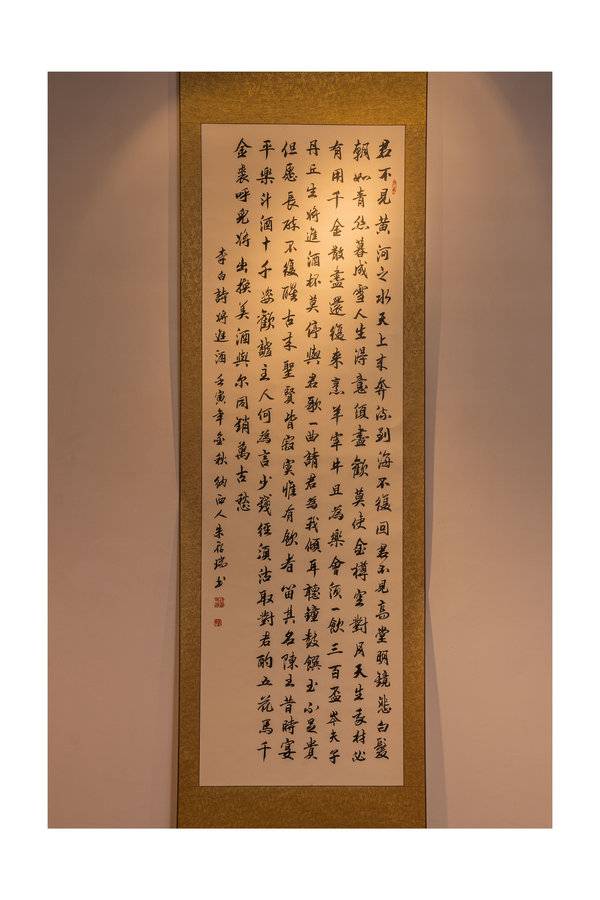 君不見黃河之水天上來奔流到海不復回君不見高堂明鏡悲白髮
朝如青絲暮成雪人生得意須盡歡莫使金樽空對月天生我材必
有用千金散盡還復來烹羊宰牛且為樂會須一飲三百盃岑夫子
丹丘生將進酒杯莫停與君歌一曲請君為我傾耳聽鐘鼓饌玉不足貴
但愿長醉不復醒古來聖賢皆寂寞惟有飲者留其名陳王昔時宴
平樂斗酒十千恣歡謔主人何為言少錢徑須沽取對君酌五花馬千
金裘呼兒將出換美酒與尔同銷萬古愁
李白詩將進酒 壬寅年金秋 納西人朱瑞书